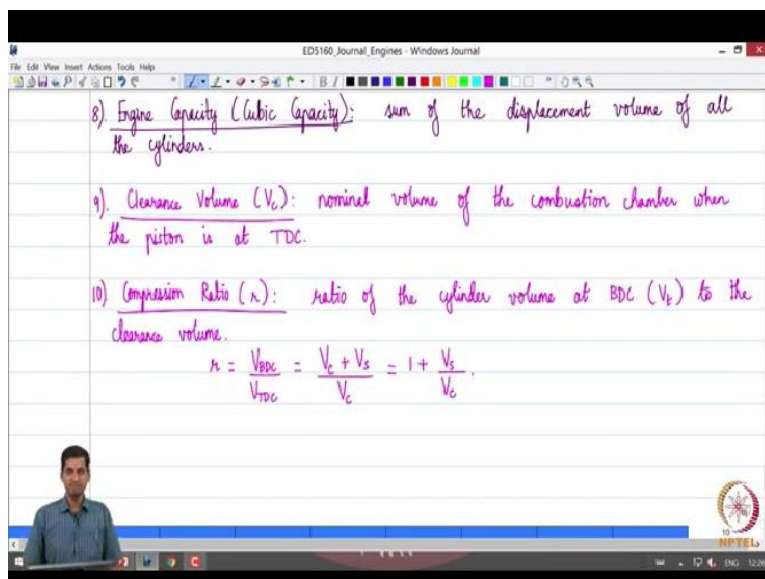 ED5160_Journal_Engines - Windows Journal
File Edit View Insert Actions Tools Help
8). Engine Capacity (Cubic Capacity): sum of the displacement volume of all
the cylinders.
9). Clearance Volume (Vc): nominal volume of the combustion chamber when
the piston is at TDC.
10) Compression Ratio (r): ratio of the cylinder volume at BDC (Vt) to the
clearance volume.
r = V_BDC / V_TDC = (Vc + Vs) / Vc = 1 + Vs / Vc.
10
NPTEL
ENG 12:26